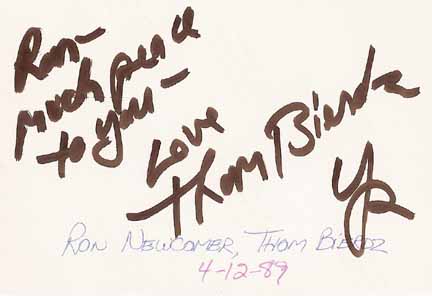 Ron-
much peace
to you-
Love
Thom Bierdz
RON NEWCOMER, THOM BIERDZ
4-12-89